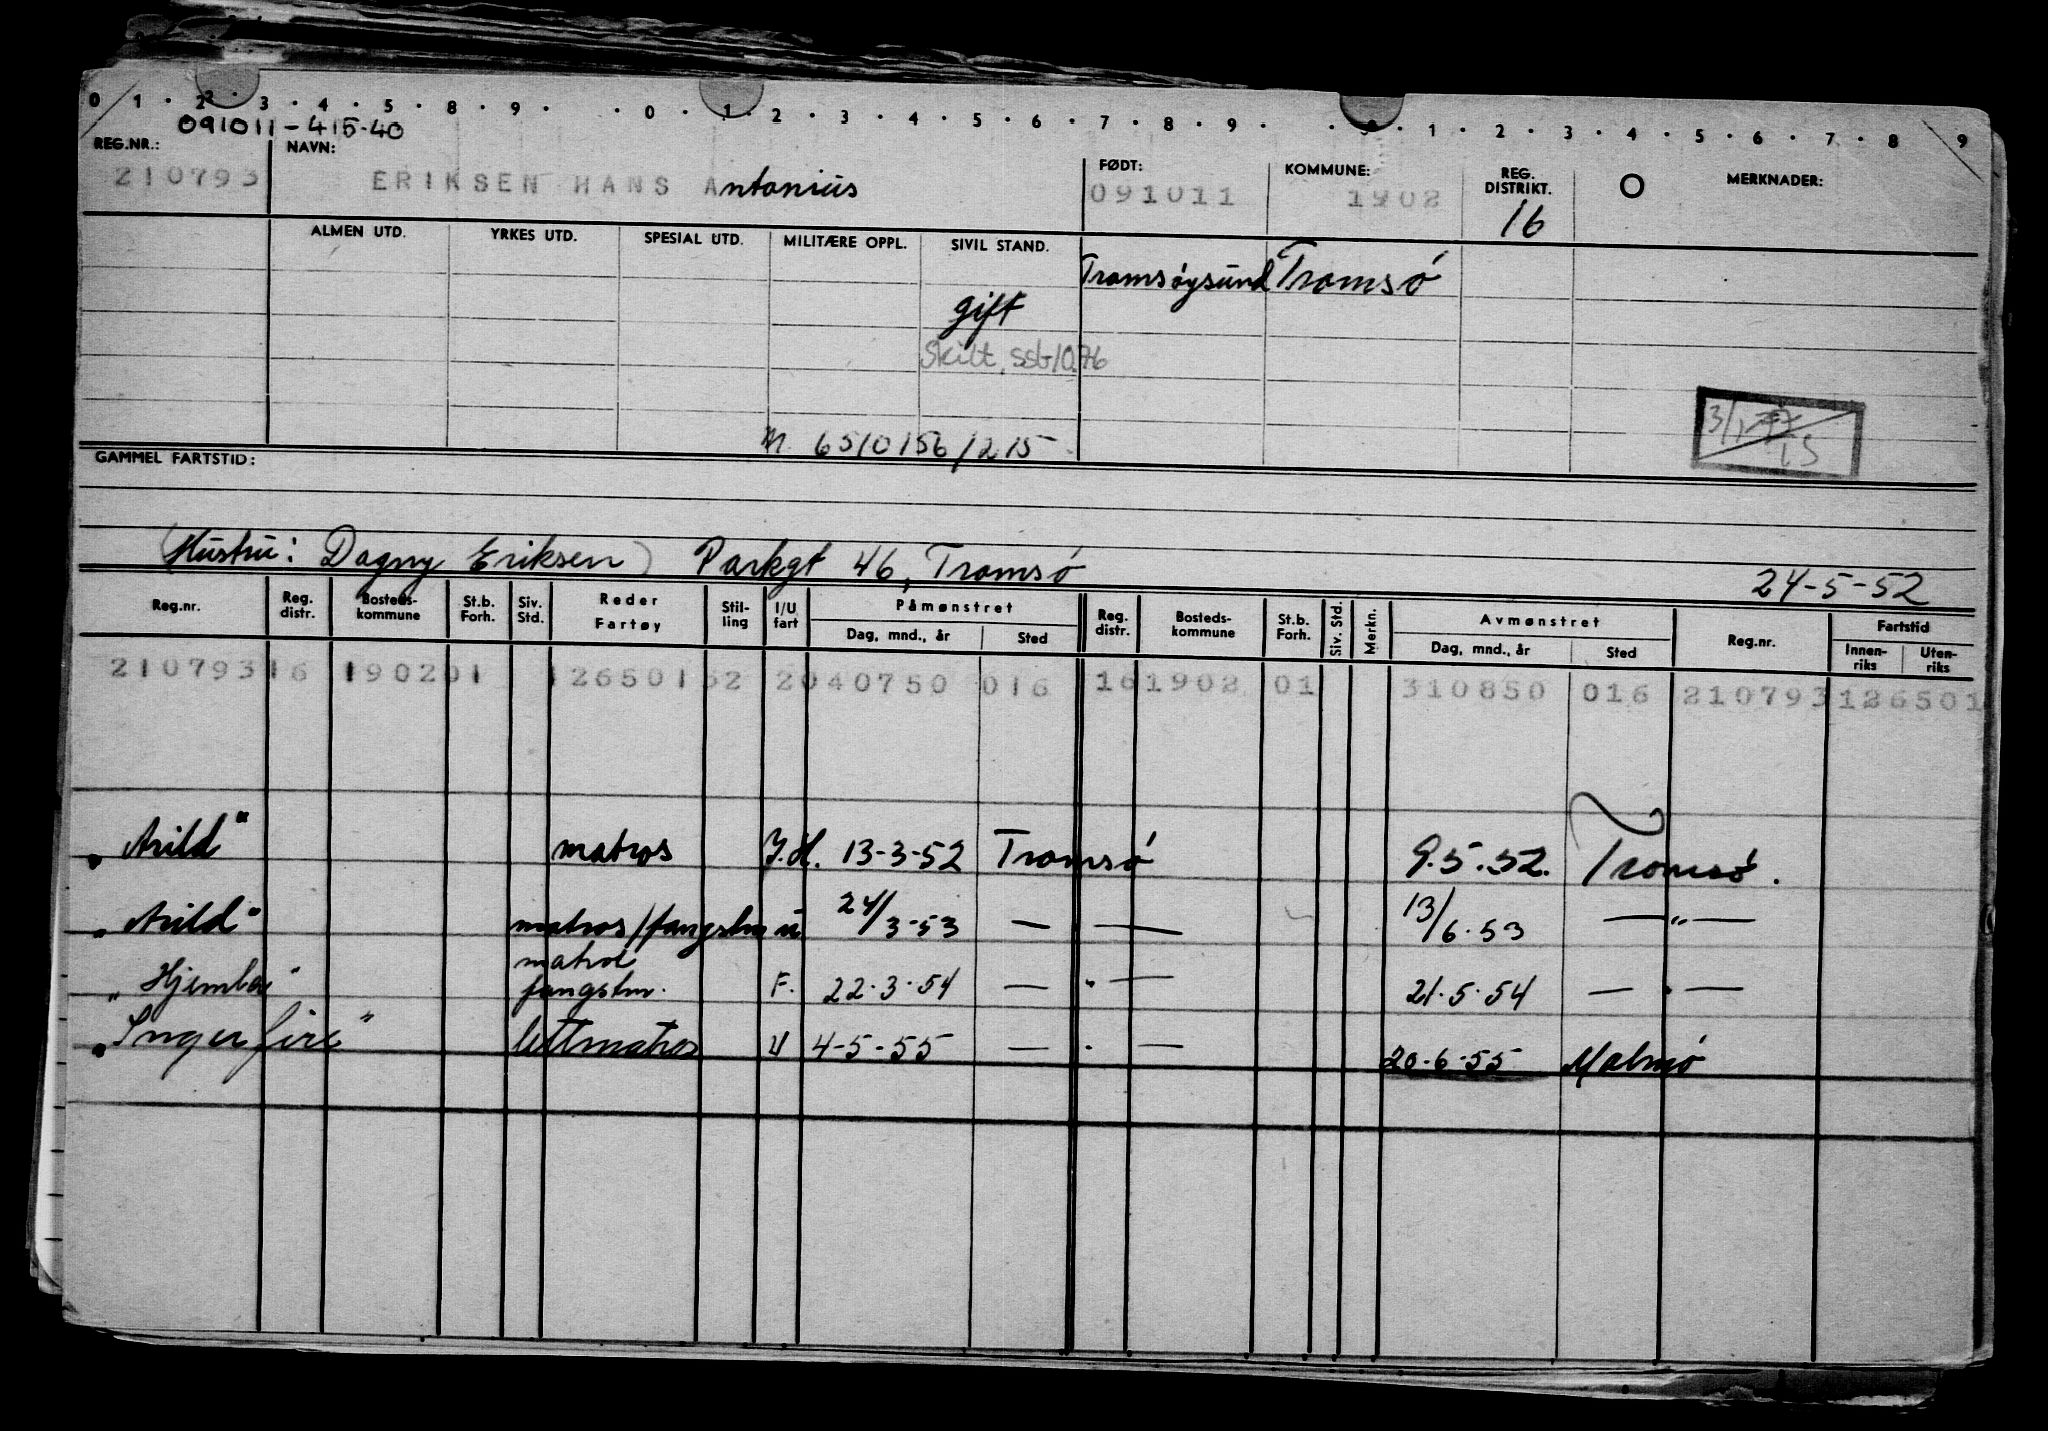 0 1 · 2 · 3 · 4 · 5 · 8 · 9 · · 0 · 1 · 2 · 3 · 4 · 5 · 6 · 7 · 8 · 9 · · 0 · 1 · 2 · 3 · 4 · 5 · 6 · 7 · 8 9
091011-415-40
REG.NR.: NAVN: FØDT: KOMMUNE: REG. DISTRIKT. O MERKNADER:
210793 ERIKSEN HANS Antonius 091011 1902 16
ALMEN UTD. YRKES UTD. SPESIAL UTD. MILITÆRE OPPL. SIVIL STAND.
Tromsøysund Tromsø
gift
Skilt, ssb 10.76
M. 6510156/215
GAMMEL FARTSTID:
(Hustru: Dagny Eriksen) Parkgt 46, Tromsø
24-5-52
Reg.nr. Reg. distr. Bosteds-kommune St.b. Forh. Siv. Std. Reder Fartøy Stil-ling I/U fart Påmønstret Reg. distr. Bosteds-kommune St.b. Forh. Siv. Std. Merkn. Avmønstret Reg.nr. Fartstid
Dag, mnd., år Sted Dag, mnd., år Sted Innen-riks Uten-riks
210793 16 1902 01 126501 52 2 040750 016 16 1902 01 310850 016 210793 126501
"Arild" matros I.H. 13-3-52 Tromsø 9.5.52. Tromsø.
"Arild" matros/fangstm u 24/3-53 — — 13/6.53 — " —
matros
"Hjembø" fangstm. F. 22.3.54 — " — 21.5.54 — " —
"Ingerfire" lettmatros U 4-5-55 — " — 20.6.55 Malmø